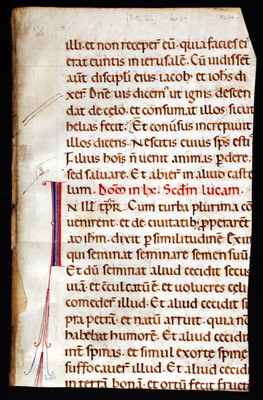 illi. et non receper̄ eū. quia facies ei᷒
erat euntis in ierusalē. Cū uidissent
aut̄ discipli eius iacob᷒ et ioh̄s di
xer̄. Dn̄e uis dicem᷒ ut ignis descen
dat de celo. et consumat illos sicut
helias fecit. Et conuersus increpuit
illos dicens. Nescitis cuius sp̄s estis.
Filius hoīs n̄ uenit animas p̄dere.
sed saluare. Et abier̄ in aliud castel
lum. Dōo in lx. Scd̄m lucam.
IN ILL' tp̄r. Cum turba plurima cō
uenirent. et de ciuitatib᷒ p̄perarent
ad ihm̄. dixit p̄ similitudinē. Exiit
qui seminat seminare semen suū.
Et dū seminat aliud cecidit secus
uiā. et cōculcatū ē. et uolucres celi
comeder̄ illud. Et aliud cecidit su
pra petrā. et natū arruit. quia nō
habebat humorē. Et aliud cecidit
int̄ spinas. et simul exorte spine
suffocauer̄ illud. Et aliud cecidit
in terrā bonā. et ortū fecit fructū